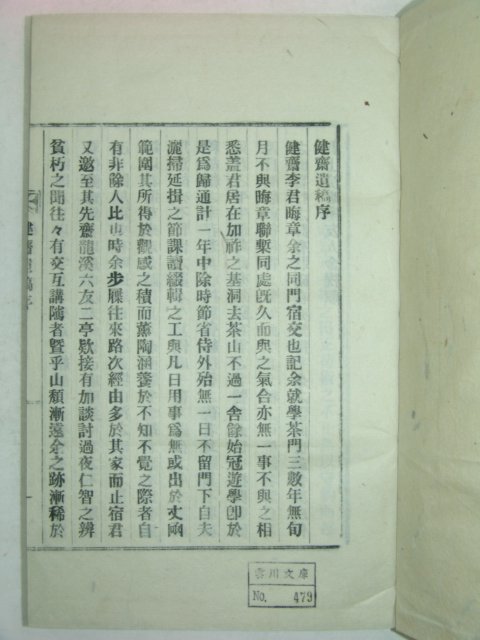 健齋遺稿序
健齋李君晦章余之同門宿交也記余就學茶門三數年無旬
月不與晦章聯槧同處旣久而與之氣合亦無一事不與之相
悉盖君居在加祚之基洞去茶山不過一舍餘始冠遊學卽於
是爲歸通計一年中除時節省侍外殆無一日不留門下自夫
灑掃延揖之節課讀綴輯之工與凡日用事爲無或出於丈凾
範圍其所得於觀感之積而薰陶涵養於不知不覺之際者自
有非餘人比也時余步屧往來路次經由多於其家而止宿君
又邀至其先齋龍溪六友二亭欵接有加談討過夜仁智之辨
貧朽之聞往々有交互講劘者曁乎山頹漸遠余之跡漸稀於
健齋遺稿序
雲川文庫
No. 479